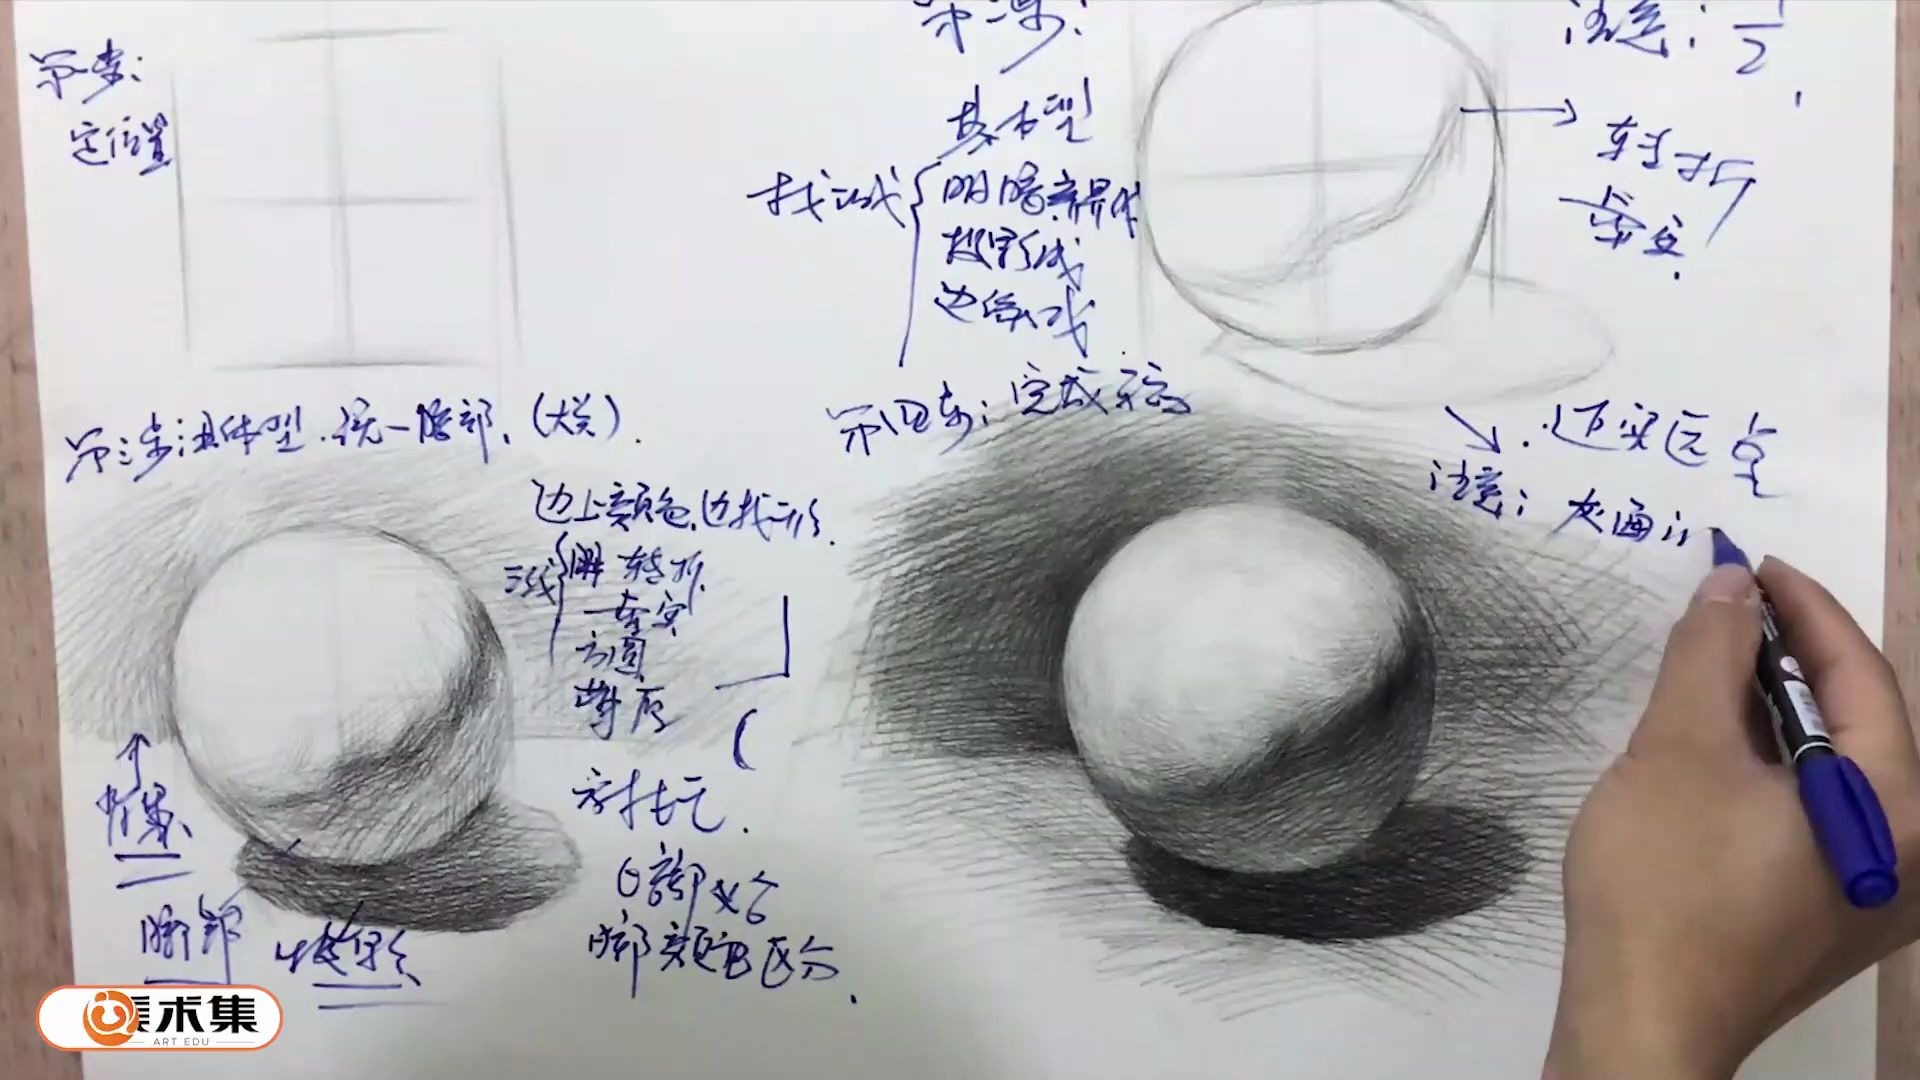 第一步:
定位置
第二步:
基本型
找三线
明暗交界线
投影线
边缘线
注意: 1/2
转折
虚实.
第三步:具体型.统一暗部.(大关)
边上颜色,边找形.
三线
转折
虚实
方圆
薄厚
背景
暗部
投影
暗部
暗部 颜色区分.
第四步:完成
近实远虚
注意: 灰面
美术集
ART EDU